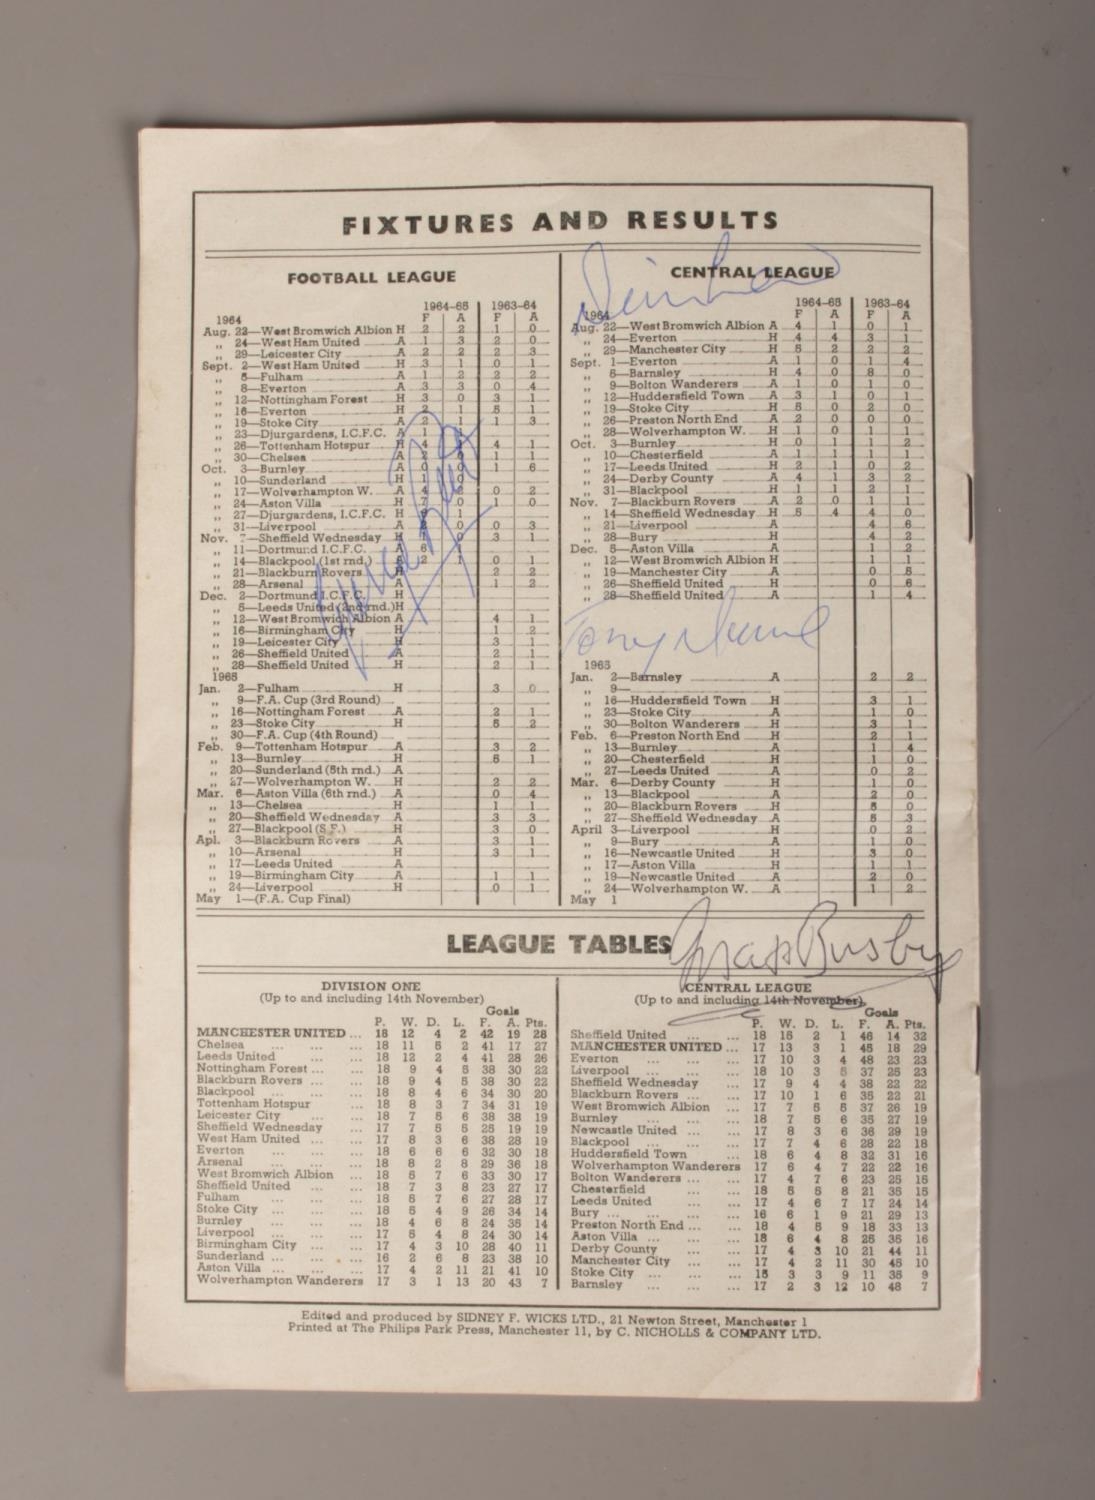 FIXTURES AND RESULTS
FOOTBALL LEAGUE
1964-65 1963-64
1964 F A F A
Aug. 22—West Bromwich Albion H 2 2 1 0
„ 24—West Ham United A 1 3 2 0
„ 29—Leicester City A 2 2 2 3
Sept. 2—West Ham United H 3 1 0 1
„ 5—Fulham A 1 2 2 2
„ 8—Everton A 3 3 0 4
„ 12—Nottingham Forest H 3 0 3 1
„ 16—Everton H 2 1 5 1
„ 19—Stoke City A 2 1 1 3
„ 23—Djurgardens, I.C.F.C. A 1 1
„ 26—Tottenham Hotspur H 4 1 4 1
„ 30—Chelsea A 2 0 1 1
Oct. 3—Burnley A 0 0 1 6
„ 10—Sunderland H 1 0
„ 17—Wolverhampton W. A 4 0 2
„ 24—Aston Villa H 7 0 1 0
„ 27—Djurgardens, I.C.F.C. H 1
„ 31—Liverpool A 2 0 0 3
Nov. 7—Sheffield Wednesday H 1 0 3 1
„ 11—Dortmund I.C.F.C. A 6 1
„ 14—Blackpool (1st rnd.) A 2 1 0 1
„ 21—Blackburn Rovers H 2 2
„ 28—Arsenal A 1 2
Dec. 2—Dortmund I.C.F.C. H
„ 5—Leeds United (2nd rnd.) H
„ 12—West Bromwich Albion A 4 1
„ 16—Birmingham City H 1 2
„ 19—Leicester City H 3 1
„ 26—Sheffield United A 2 1
„ 28—Sheffield United H 2 1
1965
Jan. 2—Fulham H 3 0
„ 9—F.A. Cup (3rd Round)
„ 16—Nottingham Forest A 2 1
„ 23—Stoke City H 5 2
„ 30—F.A. Cup (4th Round)
Feb. 9—Tottenham Hotspur A 3 2
„ 13—Burnley H 5 1
„ 20—Sunderland (5th rnd.) A
„ 27—Wolverhampton W. H 2 2
Mar. 6—Aston Villa (6th rnd.) A 0 4
„ 13—Chelsea H 1 1
„ 20—Sheffield Wednesday A 3 3
„ 27—Blackpool (S.F.) H 3 0
Apl. 3—Blackburn Rovers A 3 1
„ 10—Arsenal H 3 1
„ 17—Leeds United A
„ 19—Birmingham City A 1 1
„ 24—Liverpool H 0 1
May 1—(F.A. Cup Final)
CENTRAL LEAGUE
1964-65 1963-64
1964 F A F A
Aug. 22—West Bromwich Albion A 4 1 0 1
„ 24—Everton H 4 4 3 1
„ 29—Manchester City H 5 2 2 2
Sept. 1—Everton A 1 0 1 4
„ 5—Barnsley H 4 0 8 0
„ 9—Bolton Wanderers A 1 0 1 0
„ 12—Huddersfield Town A 3 1 0 1
„ 19—Stoke City H 5 0 2 0
„ 26—Preston North End A 2 0 0 0
„ 28—Wolverhampton W. H 1 0 1 1
Oct. 3—Burnley H 0 1 1 2
„ 10—Chesterfield A 1 1 1 1
„ 17—Leeds United H 2 1 0 2
„ 24—Derby County A 4 1 3 2
„ 31—Blackpool H 1 1 2 1
Nov. 7—Blackburn Rovers A 2 0 1 1
„ 14—Sheffield Wednesday H 5 4 4 0
„ 21—Liverpool A 4 6
„ 28—Bury H 4 2
Dec. 5—Aston Villa A 1 2
„ 12—West Bromwich Albion H 1 1
„ 19—Manchester City A 0 5
„ 26—Sheffield United H 0 6
„ 28—Sheffield United A 1 4
Tony Dunne
1965
Jan. 2—Barnsley A 2 2
„ 9—
„ 16—Huddersfield Town H 3 1
„ 23—Stoke City A 1 0
„ 30—Bolton Wanderers H 3 1
Feb. 6—Preston North End H 2 1
„ 13—Burnley A 1 4
„ 20—Chesterfield H 1 0
„ 27—Leeds United A 0 2
Mar. 6—Derby County H 1 0
„ 13—Blackpool A 2 0
„ 20—Blackburn Rovers H 5 0
„ 27—Sheffield Wednesday A 5 3
April 3—Liverpool H 0 2
„ 9—Bury A 1 0
„ 16—Newcastle United H 3 0
„ 17—Aston Villa H 1 1
„ 19—Newcastle United A 2 0
„ 24—Wolverhampton W. A 1 2
May 1
LEAGUE TABLES
Matt Busby
DIVISION ONE
(Up to and including 14th November)
Goals
P. W. D. L. F. A. Pts.
MANCHESTER UNITED ... 18 12 4 2 42 19 28
Chelsea ... ... ... 18 11 5 2 41 17 27
Leeds United ... ... 18 12 2 4 41 28 26
Nottingham Forest ... ... 18 9 4 5 38 30 22
Blackburn Rovers ... ... 18 9 4 5 38 30 22
Blackpool ... ... ... 18 8 4 6 34 30 20
Tottenham Hotspur ... 18 8 3 7 34 31 19
Leicester City ... ... 18 7 5 6 38 38 19
Sheffield Wednesday ... 17 7 5 5 25 19 19
West Ham United ... ... 17 8 3 6 38 28 19
Everton ... ... ... 18 6 6 6 32 30 18
Arsenal ... ... ... 18 8 2 8 29 36 18
West Bromwich Albion ... 18 5 7 6 33 30 17
Sheffield United ... ... 18 7 3 8 23 27 17
Fulham ... ... ... 18 5 7 6 27 28 17
Stoke City ... ... ... 18 5 4 9 26 34 14
Burnley ... ... ... 18 4 6 8 24 35 14
Liverpool ... ... ... 17 5 4 8 24 30 14
Birmingham City ... ... 17 4 3 10 28 40 11
Sunderland ... ... ... 16 2 6 8 23 38 10
Aston Villa ... ... ... 17 4 2 11 21 41 10
Wolverhampton Wanderers 17 3 1 13 20 43 7
CENTRAL LEAGUE
(Up to and including 14th November)
Goals
P. W. D. L. F. A. Pts.
Sheffield United ... ... 18 15 2 1 46 14 32
MANCHESTER UNITED ... 17 13 3 1 45 18 29
Everton ... ... ... 17 10 3 4 48 23 23
Liverpool ... ... ... 18 10 3 5 37 25 23
Sheffield Wednesday ... 17 9 4 4 38 22 22
Blackburn Rovers ... ... 17 10 1 6 35 22 21
West Bromwich Albion ... 17 7 5 5 37 26 19
Burnley ... ... ... 18 7 5 6 35 27 19
Newcastle United ... ... 17 8 3 6 36 29 19
Blackpool ... ... ... 17 7 4 6 28 22 18
Huddersfield Town ... 18 6 4 8 32 31 16
Wolverhampton Wanderers 17 6 4 7 22 22 16
Bolton Wanderers ... ... 17 4 7 6 23 25 15
Chesterfield ... ... 18 5 5 8 21 35 15
Leeds United ... ... 17 4 6 7 17 24 14
Bury ... ... ... 16 6 1 9 21 29 13
Preston North End ... ... 18 4 5 9 18 33 13
Aston Villa ... ... ... 18 6 4 8 25 35 16
Derby County ... ... 17 4 3 10 21 44 11
Manchester City ... ... 17 4 2 11 30 45 10
Stoke City ... ... ... 15 3 3 9 11 35 9
Barnsley ... ... ... 17 2 3 12 10 48 7
Edited and produced by SIDNEY F. WICKS LTD., 21 Newton Street, Manchester 1
Printed at The Philips Park Press, Manchester 11, by C. NICHOLLS & COMPANY LTD.